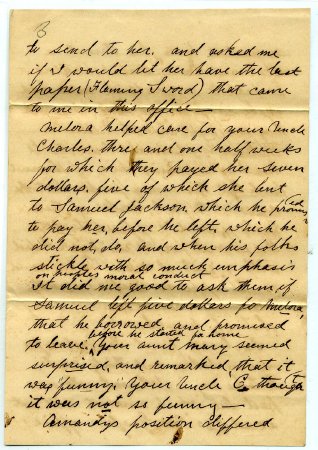 3
to send to her, and asked me
if I would let her have the last
paper (Flaming Sword) that came
to me in this office—
Melora helped care for your Uncle
Charles, three and one half weeks
for which they payed her seven
dollars, five of which she lent
to Samuel Jackson, which he promised
to pay her, before he left, which he
did not, do, and when his folks
stickle with so much emphasis
on peoples moral conduct
It did me good to ask them, if
Samuel left five dollars fo Melora,
that he borrowed, and promised
before he started for home
to leave. Your aunt Mary seemed
surprised, and remarked that it
was funny; Your Uncle C. thought
it was not so funny—
Amandy's position differed